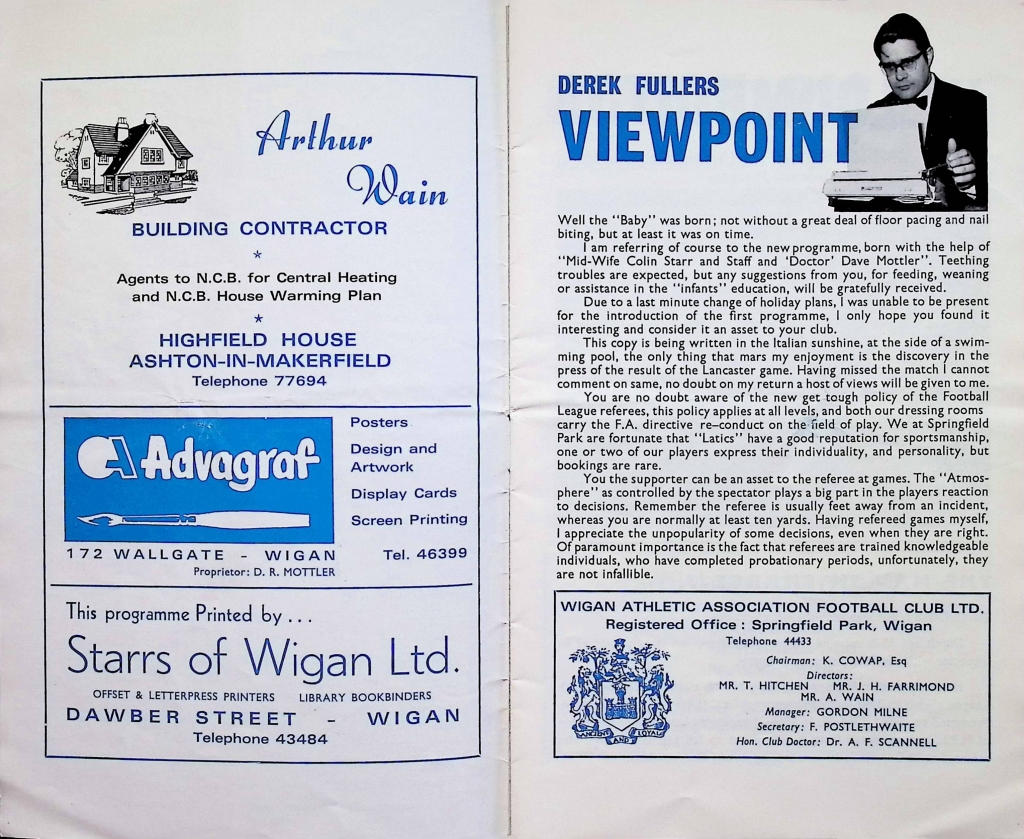 Arthur
Wain
BUILDING CONTRACTOR
*
Agents to N.C.B. for Central Heating
and N.C.B. House Warming Plan
*
HIGHFIELD HOUSE
ASHTON-IN-MAKERFIELD
Telephone 77694
Advagraf
Posters
Design and
Artwork
Display Cards
Screen Printing
172 WALLGATE - WIGAN Tel. 46399
Proprietor: D. R. MOTTLER
This programme Printed by . . .
Starrs of Wigan Ltd.
OFFSET & LETTERPRESS PRINTERS LIBRARY BOOKBINDERS
DAWBER STREET - WIGAN
Telephone 43484
DEREK FULLERS
VIEWPOINT
Well the "Baby" was born; not without a great deal of floor pacing and nail
biting, but at least it was on time.
I am referring of course to the new programme, born with the help of
"Mid-Wife Colin Starr and Staff and 'Doctor' Dave Mottler". Teething
troubles are expected, but any suggestions from you, for feeding, weaning
or assistance in the "infants" education, will be gratefully received.
Due to a last minute change of holiday plans, I was unable to be present
for the introduction of the first programme, I only hope you found it
interesting and consider it an asset to your club.
This copy is being written in the Italian sunshine, at the side of a swim-
ming pool, the only thing that mars my enjoyment is the discovery in the
press of the result of the Lancaster game. Having missed the match I cannot
comment on same, no doubt on my return a host of views will be given to me.
You are no doubt aware of the new get tough policy of the Football
League referees, this policy applies at all levels, and both our dressing rooms
carry the F.A. directive re-conduct on the field of play. We at Springfield
Park are fortunate that "Latics" have a good reputation for sportsmanship,
one or two of our players express their individuality, and personality, but
bookings are rare.
You the supporter can be an asset to the referee at games. The "Atmos-
phere" as controlled by the spectator plays a big part in the players reaction
to decisions. Remember the referee is usually feet away from an incident,
whereas you are normally at least ten yards. Having refereed games myself,
I appreciate the unpopularity of some decisions, even when they are right.
Of paramount importance is the fact that referees are trained knowledgeable
individuals, who have completed probationary periods, unfortunately, they
are not infallible.
WIGAN ATHLETIC ASSOCIATION FOOTBALL CLUB LTD.
Registered Office : Springfield Park, Wigan
Telephone 44433
Chairman: K. COWAP, Esq
Directors:
MR. T. HITCHEN MR. J. H. FARRIMOND
MR. A. WAIN
Manager: GORDON MILNE
Secretary: F. POSTLETHWAITE
Hon. Club Doctor: Dr. A. F. SCANNELL
ANCIENT AND LOYAL